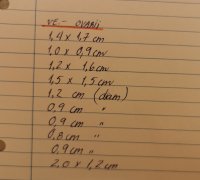 VE.- OVARII
1,4 x 1,7 cm
1,0 x 0,9 cm
1,2 x 1,6 cm
1,5 x 1,5 cm
1,2 cm (diam)
0,9 cm "
0,9 cm "
0,8 cm "
0,9 cm "
2,0 x 1,2 cm